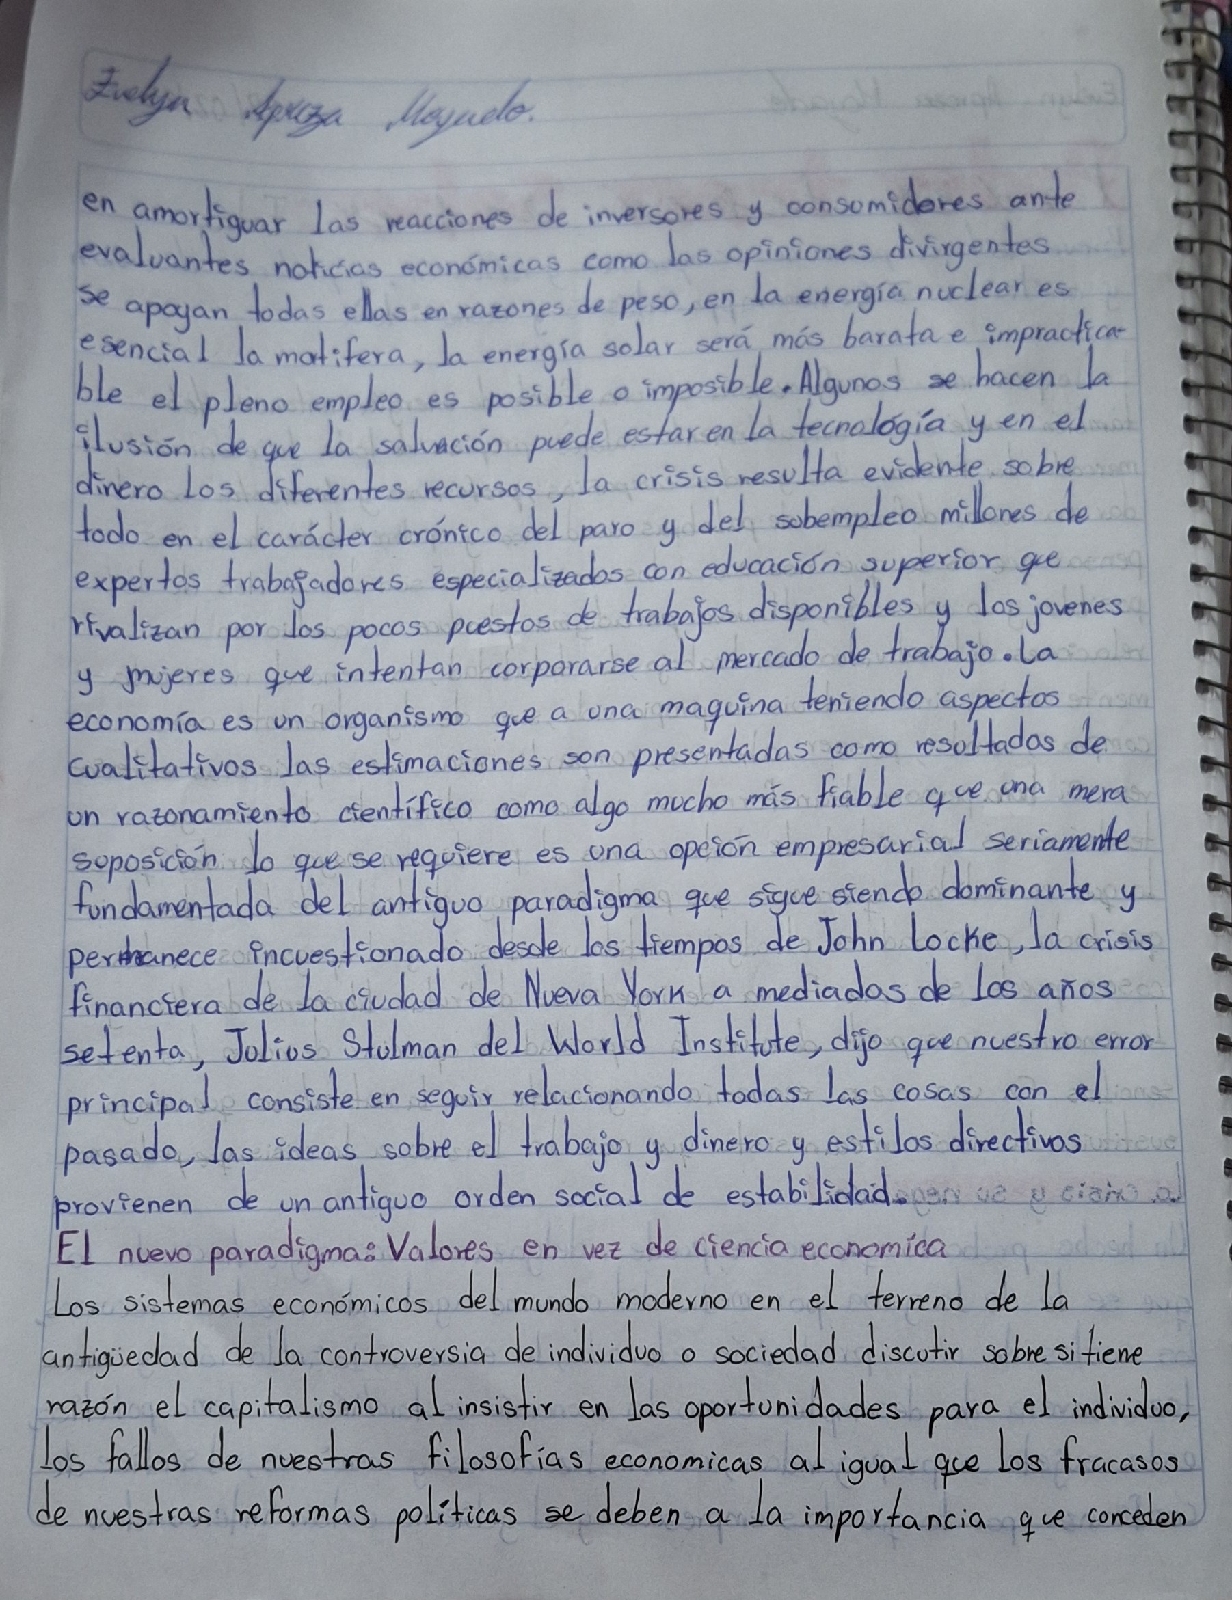 Evelyn Apreza Moyado.
en amortiguar las reacciones de inversores y consumidores ante
evaluantes noticias económicas como las opiniones divirgentes
se apoyan todas ellas en razones de peso, en la energía nuclear es
esencial la motifera, la energía solar será más barata e impractica-
ble el pleno empleo es posible o imposible. Algunos se hacen la
ilusión de que la salvación puede estar en la tecnología y en el
dinero los diferentes recursos, la crisis resulta evidente sobre
todo en el carácter crónico del paro y del subempleo millones de
expertos trabajadores especializados con educación superior que
rivalizan por los pocos puestos de trabajos disponibles y los jovenes
y mujeres que intentan corporarse al mercado de trabajo. La
economía es un organismo que a una maquina teniendo aspectos
cualitativos las estimaciones son presentadas como resultados de
un razonamiento científico como algo mucho más fiable que una mera
suposición lo que se requiere es una opción empresarial seriamente
fundamentada del antiguo paradigma que sigue siendo dominante y
permanece incuestionado desde los tiempos de John Locke, la crisis
financiera de la ciudad de Nueva York a mediados de los años
setenta, Julius Stulman del World Institute, dijo que nuestro error
principal consiste en seguir relacionando todas las cosas con el
pasado, las ideas sobre el trabajo y dinero y estilos directivos
provienen de un antiguo orden social de estabilidad.
El nuevo paradigma: Valores en vez de ciencia economica
Los sistemas económicos del mundo moderno en el terreno de la
antigüedad de la controversia de individuo o sociedad discutir sobre si tiene
razón el capitalismo al insistir en las oportunidades para el individuo,
los fallos de nuestras filosofías economicas al igual que los fracasos
de nuestras reformas políticas se deben a la importancia que conceden